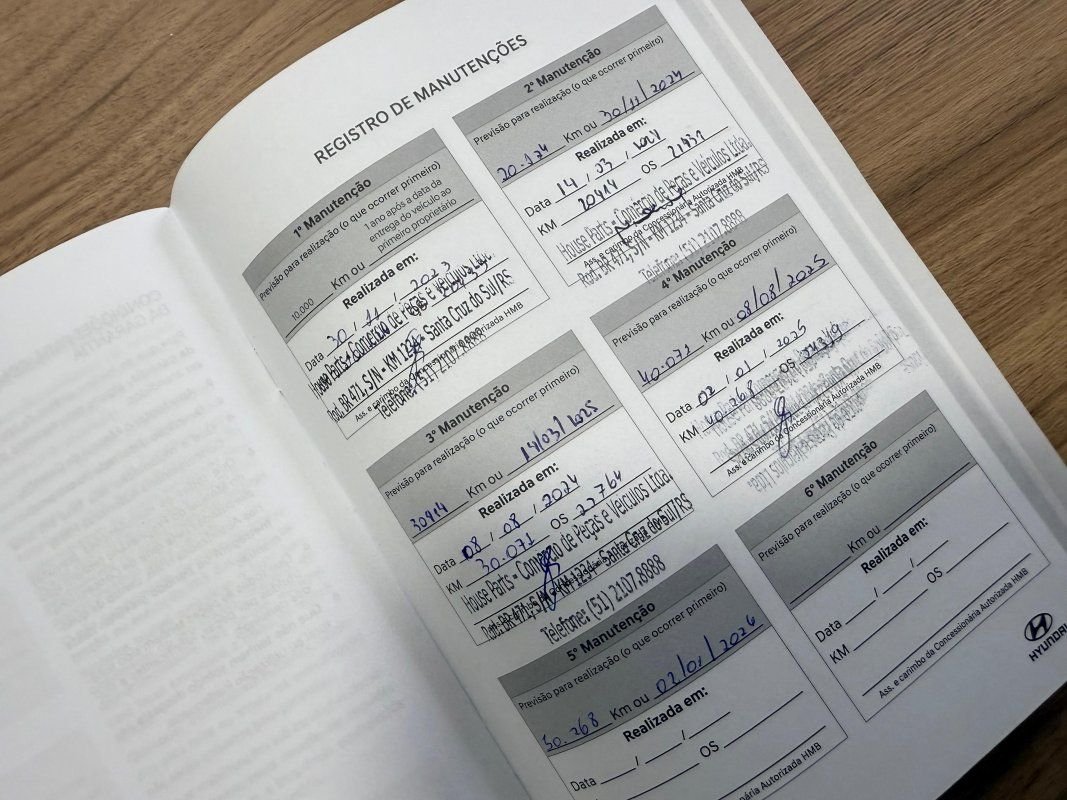 REGISTRO DE MANUTENÇÕES
1º Manutenção
Previsão para realização (o que ocorrer primeiro)
1 ano após a data da
entrega do veículo ao
primeiro proprietário
10.000 Km ou
Realizada em:
Data 30 / 11 / 2023
House Parts - Comércio de Peças e Veículos Ltda.
Rod. BR 471, S/N - KM 1234 - Santa Cruz do Sul/RS
Ass. e carimbo da Concessionária Autorizada HMB
Telefone: (51) 2107.8888
2º Manutenção
Previsão para realização (o que ocorrer primeiro)
20.124 Km ou 30/11/2024
Realizada em:
Data 14 / 03 / 2024
KM 20414 OS 21431
House Parts - Comércio de Peças e Veículos Ltda.
Ass. e carimbo da Concessionária Autorizada HMB
Rod. BR 471, S/N - KM 1234 - Santa Cruz do Sul/RS
Telefone: (51) 2107.8888
3º Manutenção
Previsão para realização (o que ocorrer primeiro)
30414 Km ou 14/03/2025
Realizada em:
Data 08 / 08 / 2024
KM 30.071 OS 22764
House Parts - Comércio de Peças e Veículos Ltda.
Rod. BR 471, S/N - KM 1234 - Santa Cruz do Sul/RS
Telefone: (51) 2107.8888
4º Manutenção
Previsão para realização (o que ocorrer primeiro)
40.071 Km ou 08/08/2025
Realizada em:
Data 02 / 01 / 2025
KM 40.268 OS
Ass. e carimbo da Concessionária Autorizada HMB
5º Manutenção
Previsão para realização (o que ocorrer primeiro)
50.268 Km ou 02/01/2026
Realizada em:
Data / /
OS
Autorizada HMB
6º Manutenção
Previsão para realização (o que ocorrer primeiro)
Km ou
Realizada em:
Data / /
KM OS
Ass. e carimbo da Concessionária Autorizada HMB
HYUNDAI